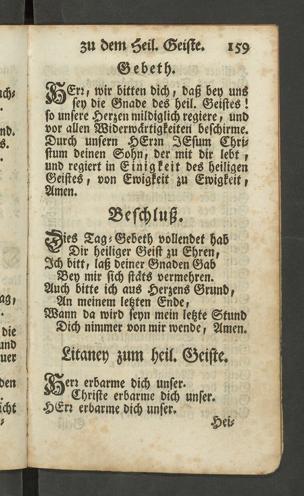 zu dem Heil. Geiste. 159
Gebeth.
HErr, wir bitten dich, daß bey uns
sey die Gnade des heil. Geistes!
so unsere Herzen mildiglich regiere, und
vor allen Widerwärtigkeiten beschirme.
Durch unsern HErrn JEsum Chri-
stum deinen Sohn, der mit dir lebt,
und regiert in Einigkeit des heiligen
Geistes, von Ewigkeit zu Ewigkeit,
Amen.
Beschluß.
Dies Tag-Gebeth vollendet hab
Dir heiliger Geist zu Ehren,
Ich bitt, laß deiner Gnaden Gab
Bey mir sich stäts vermehren.
Auch bitte ich aus Herzens Grund,
An meinem letzten Ende,
Wann da wird seyn mein letzte Stund
Dich nimmer von mir wende, Amen.
Litaney zum heil. Geiste.
Herr erbarme dich unser.
Christe erbarme dich unser.
HErr erbarme dich unser.
Hei-